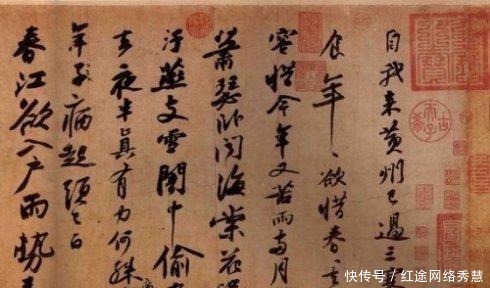 自我来黄州已過三
食年〻欲惜春〻去
容惜今年又苦雨兩月
蕭瑟卧聞海棠花
汙燕支雪闇中偷
去夜半真有力何殊
年子病起頭已白
春江欲入户雨勢
古希天子
快传号 / 红途网络秀慧